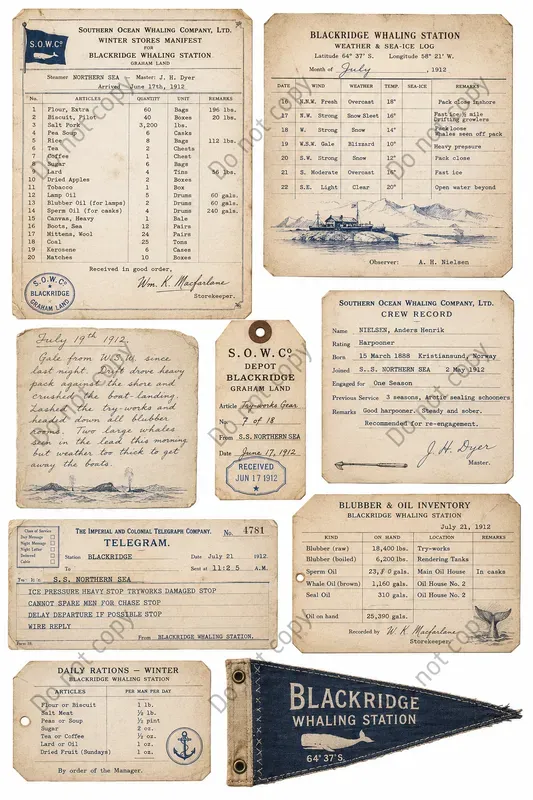 S.O.W.Co
SOUTHERN OCEAN WHALING COMPANY, LTD.
WINTER STORES MANIFEST
FOR
BLACKRIDGE WHALING STATION
GRAHAM LAND
Steamer NORTHERN SEA — Master: J. H. Dyer
Arrived June 17th, 1912
No. ARTICLES QUANTITY UNIT REMARKS
1 Flour, Extra 60 Bags 196 lbs.
2 Biscuit, Pilot 40 Boxes 20 lbs.
3 Salt Pork 3,200 lbs.
4 Pea Soup 6 Cases
5 Rice 8 Bags 112 lbs.
6 Tea 2 Chests
7 Coffee 1 Chest
8 Sugar 6 Bags
9 Lard 4 Tins 56 lbs.
10 Dried Apples 2 Boxes
11 Tobacco 1 Box
12 Lamp Oil 5 Drums 60 gals.
13 Blubber Oil (for lamps) 2 Drums 60 gals.
14 Sperm Oil (for casks) 4 Drums 240 gals.
15 Canvas, Heavy 1 Bale
16 Boots, Sea 12 Pairs
17 Mittens, Wool 24 Pairs
18 Coal 25 Tons
19 Kerosene 6 Cases
20 Matches 10 Boxes
Received in good order,
Wm. K. Macfarlane
Storekeeper.
S.O.W.Co
BLACKRIDGE
GRAHAM LAND
BLACKRIDGE WHALING STATION
WEATHER & SEA-ICE LOG
Latitude 64° 37' S. Longitude 58° 21' W.
Month of July, 1912
DATE WIND WEATHER TEMP. SEA-ICE REMARKS
16 N.N.W. Fresh Overcast 18° Pack close inshore
17 N.W. Strong Snow Sleet 16° Fast ice ½ mile
Drifting growlers
18 W. Strong Snow 14° Pack loose
Whales seen off pack
19 W.S.W. Gale Blizzard 10° Heavy pressure
20 S.W. Strong Snow 12° Pack close
21 S. Moderate Overcast 16° Fast ice
22 S.E. Light Clear 20° Open water beyond
Observer: A. H. Nielsen
July 19th 1912.
Gale from W.S.W. since
last night. Drift drove heavy
pack against the shore and
crushed the boat-landing.
Lashed the try-works and
headed down all blubber
rooms. Two large whales
seen in the lead this morning
but weather too thick to get
away the boats.
S.O.W.Co
DEPOT
BLACKRIDGE
GRAHAM LAND
Article Try-works Gear
No. 7 of 18
From S.S. NORTHERN SEA
Date June 17, 1912
RECEIVED
JUN 17 1912
SOUTHERN OCEAN WHALING COMPANY, LTD.
CREW RECORD
Name NIELSEN, Anders Henrik
Rating Harpooner
Born 15 March 1888 Kristiansund, Norway
Joined S.S. NORTHERN SEA 2 May 1912
Engaged for One Season
Previous Service 3 seasons, Arctic sealing schooners
Remarks Good harpooner. Steady and sober.
Recommended for re-engagement.
J. H. Dyer
Master.
Class of Service
Day Message
Night Message
Night Letter
Deferred
Cable
THE IMPERIAL AND COLONIAL TELEGRAPH COMPANY. No. 4781
TELEGRAM.
Station BLACKRIDGE Date July 21 1912
To Sent at 11:25 A.M.
S.S. NORTHERN SEA
ICE PRESSURE HEAVY STOP TRYWORKS DAMAGED STOP
CANNOT SPARE MEN FOR CHASE STOP
DELAY DEPARTURE IF POSSIBLE STOP
WIRE REPLY
From BLACKRIDGE WHALING STATION.
BLUBBER & OIL INVENTORY
BLACKRIDGE WHALING STATION
July 21, 1912
KIND ON HAND LOCATION REMARKS
Blubber (raw) 18,400 lbs. Try-works
Blubber (boiled) 6,200 lbs. Rendering Tanks
Sperm Oil gals. Main Oil House In casks
Whale Oil (brown) 1,160 gals. Oil House No. 2
Seal Oil 310 gals. Oil House No. 2
Oil on hand 25,390 gals.
Recorded by W. K. Macfarlane
Storekeeper
DAILY RATIONS — WINTER
BLACKRIDGE WHALING STATION
ARTICLES PER MAN PER DAY
Flour or Biscuit 1 lb.
Salt Meat ½ lb.
Peas or Soup ½ pint
Sugar 2 oz.
Tea or Coffee ½ oz.
Lard or Oil 1 oz.
Dried Fruit (Sundays) 1 oz.
By order of the Manager.
BLACKRIDGE
WHALING STATION
64° 37' S.
Do not copy
Do not copy
Do not copy
Do not copy
Do not copy
Do not copy
Do not copy
Do not copy
Do not copy